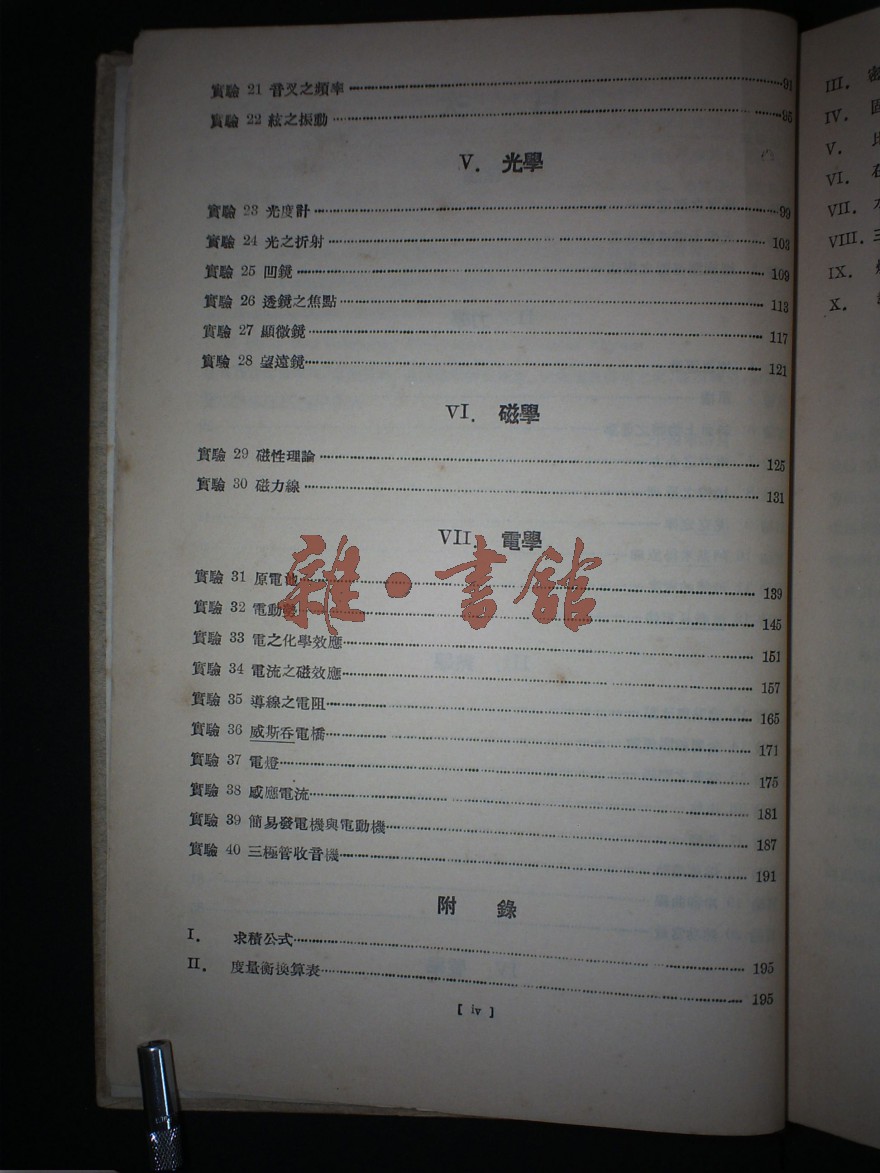 實驗 21 音叉之頻率 91
實驗 22 絃之振動 95
V. 光學
實驗 23 光度計 99
實驗 24 光之折射 103
實驗 25 凹鏡 109
實驗 26 透鏡之焦點 113
實驗 27 顯微鏡 117
實驗 28 望遠鏡 121
VI. 磁學
實驗 29 磁性理論 125
實驗 30 磁力線 131
VII. 電學
雜·書館
實驗 31 原電池 139
實驗 32 電動勢 145
實驗 33 電之化學效應 151
實驗 34 電流之磁效應 157
實驗 35 導線之電阻 165
實驗 36 威斯吞電橋 171
實驗 37 電燈 175
實驗 38 感應電流 181
實驗 39 簡易發電機與電動機 187
實驗 40 三極管收音機 191
附 錄
I. 求積公式 195
II. 度量衡換算表 195
[ iv ]
III.
IV.
V.
VI.
VII.
VIII. 三
IX.
X.